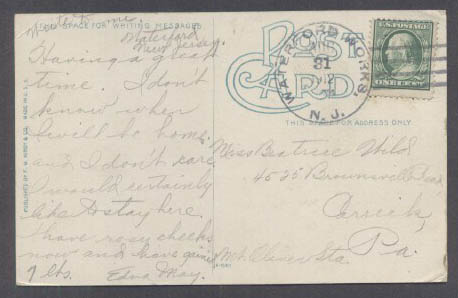 Write to me
THIS SPACE FOR WRITING MESSAGES
Waterford
New Jersey.
Having a great
time. I don't
know when
I will be home.
and I don't care
I would certainly
like to stay here.
I have rosy cheeks
now and have gained
9 lbs. Edna May.
PUBLISHED BY MADE IN U.S.A.
POST CARD
WATERFORD WORKS,
31
N. J.
U.S. POSTAGE
ONE CENT
THIS SPACE FOR ADDRESS ONLY
Miss Beatrice Wild
4525 Brownsville Road
Carrick,
Mt. Oliver Sta. Pa.